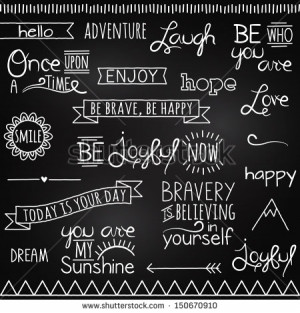 hello
ADVENTURE
Laugh
BE WHO
you are
Once UPON
A TIME
ENJOY
hope
BE BRAVE, BE HAPPY
Love
SMILE
BE joyful NOW
shutterstock
happy
TODAY IS YOUR DAY
BRAVERY
IS BELIEVING
in
yourself
you are
MY
Sunshine
DREAM
joyful
www.shutterstock.com · 150670910